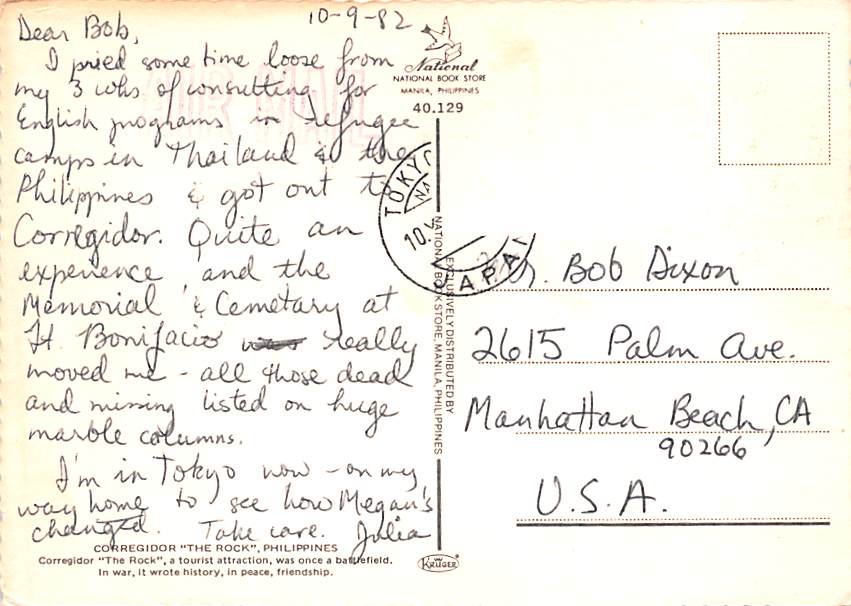 10-9-82
Dear Bob,
I pried some time loose from
my 3 wks of consulting for
English programs in refugee
camps in Thailand & the
Philippines & got out to
Corregidor. Quite an
experience, and the
Memorial & Cemetary at
Ft. Bonifacio really
moved me - all those dead
and missing listed on huge
marble columns.
I'm in Tokyo now - on my
way home to see how Megan's
changed. Take care. Julia
CORREGIDOR "THE ROCK", PHILIPPINES
Corregidor "The Rock", a tourist attraction, was once a battlefield.
In war, it wrote history, in peace, friendship.
National
NATIONAL BOOK STORE
MANILA, PHILIPPINES
40.129
TOKYO
10.
JAPAN
EXCLUSIVELY DISTRIBUTED BY
NATIONAL BOOK STORE, MANILA, PHILIPPINES
KRÜGER
Mr. Bob Dixon
2615 Palm Ave.
Manhattan Beach, CA
90266
U.S.A.